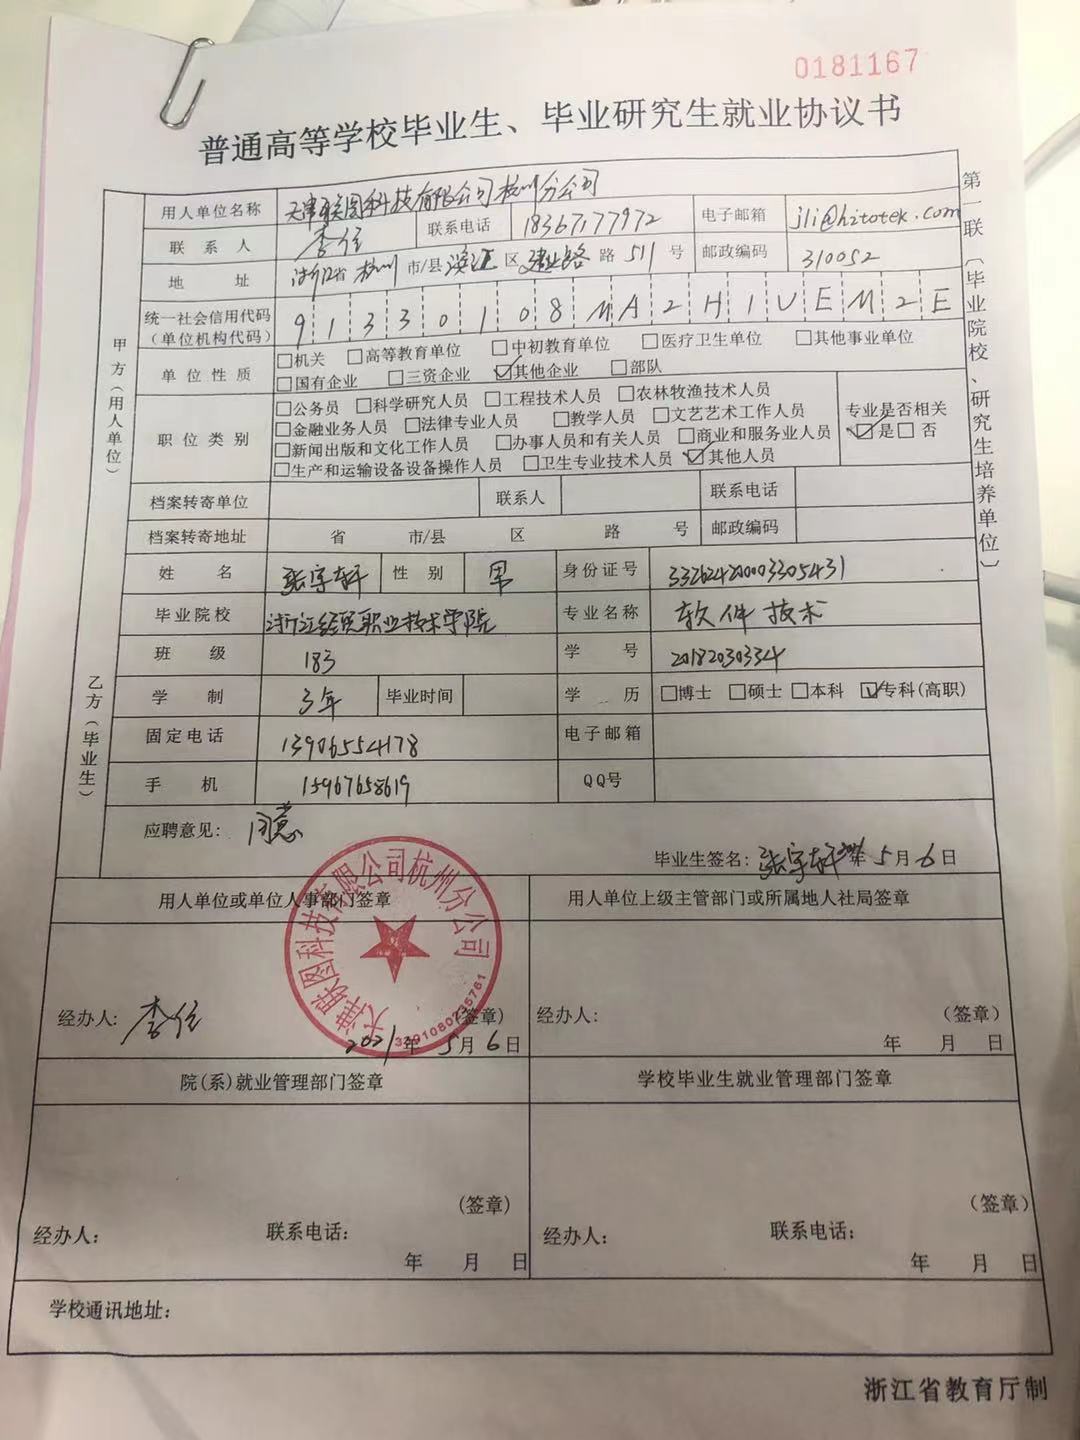 0181167
普通高等学校毕业生、毕业研究生就业协议书
第一联（毕业院校、研究生培养单位）
甲方（用人单位）
用人单位名称 天津联图科技有限公司杭州分公司
联系人 李佳 联系电话 18367177972 电子邮箱 jli@hitotek.com
地址 浙江省 杭州 市/县 滨江 区 建业路 路 511 号 邮政编码 310052
统一社会信用代码 91330108MA2H1UEM2E
（单位机构代码）
单位性质 □机关 □高等教育单位 □中初教育单位 □医疗卫生单位 □其他事业单位
□国有企业 □三资企业 ☑其他企业 □部队
职位类别 □公务员 □科学研究人员 □工程技术人员 □农林牧渔技术人员
□金融业务人员 □法律专业人员 □教学人员 □文艺艺术工作人员
□新闻出版和文化工作人员 □办事人员和有关人员 □商业和服务业人员
□生产和运输设备设备操作人员 □卫生专业技术人员 ☑其他人员
专业是否相关
☑是□否
档案转寄单位 联系人 联系电话
档案转寄地址 省 市/县 区 路 号 邮政编码
乙方（毕业生）
姓名 张宇轩 性别 男 身份证号 332624200003305431
毕业院校 浙江经贸职业技术学院 专业名称 软件技术
班级 183 学号 20182030334
学制 3年 毕业时间 学历 □博士 □硕士 □本科 ☑专科(高职)
固定电话 13906554178 电子邮箱
手机 15967658619 QQ号
应聘意见：同意
毕业生签名：张宇轩 年 5月6日
用人单位或单位人事部门签章 用人单位上级主管部门或所属地人社局签章
天津联图科技有限公司杭州分公司
经办人：李佳 (签章) 经办人： （签章）
2021年5月6日 年 月 日
院(系)就业管理部门签章 学校毕业生就业管理部门签章
(签章) （签章）
经办人： 联系电话： 经办人： 联系电话：
年 月 日 年 月 日
学校通讯地址：
浙江省教育厅制